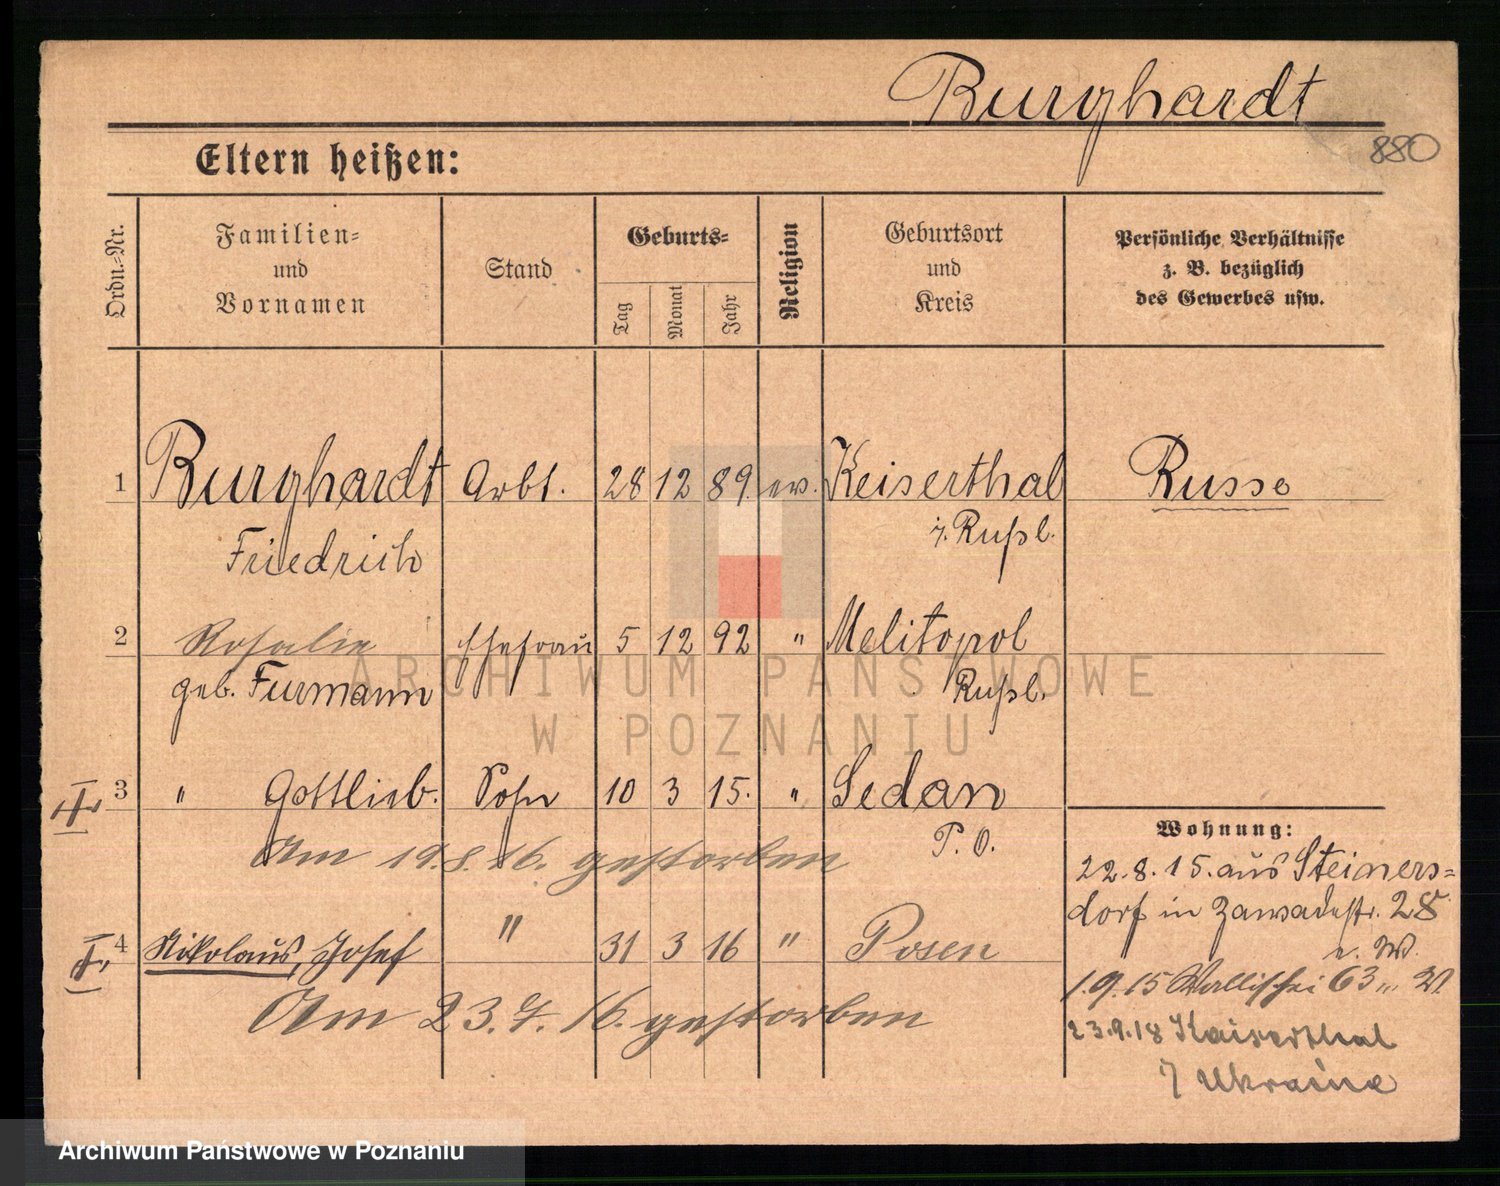 Burghardt
880
Eltern heißen:
Ordn.-Nr.
Familien-
und
Vornamen
Stand
Geburts-
Tag
Monat
Jahr
Religion
Geburtsort
und
Kreis
Persönliche Verhältnisse
z. B. bezüglich
des Gewerbes usw.
1 Burghardt Arbt. 28 12 89. ev. Keiserthal Russe
Friedrich i. Rußl.
2 Rosalie Ehefrau 5 12 92 " Melitopol
geb. Furmann Rußl.
3 " Gottlieb. Sohn 10 3 15. " Sedan
P. O.
Am 19.8.16. gestorben
4 Nikolaus, Josef " 31 3 16 " Posen
Am 23.7.16. gestorben
Wohnung:
22.8.15. aus Steiners-
dorf in Zawadestr. 28
e. W.
1.9.15 Wallischei 63 „ W.
23.9.18 Kaiserthal
i Ukraine
ARCHIWUM PAŃSTWOWE
W POZNANIU
Archiwum Państwowe w Poznaniu